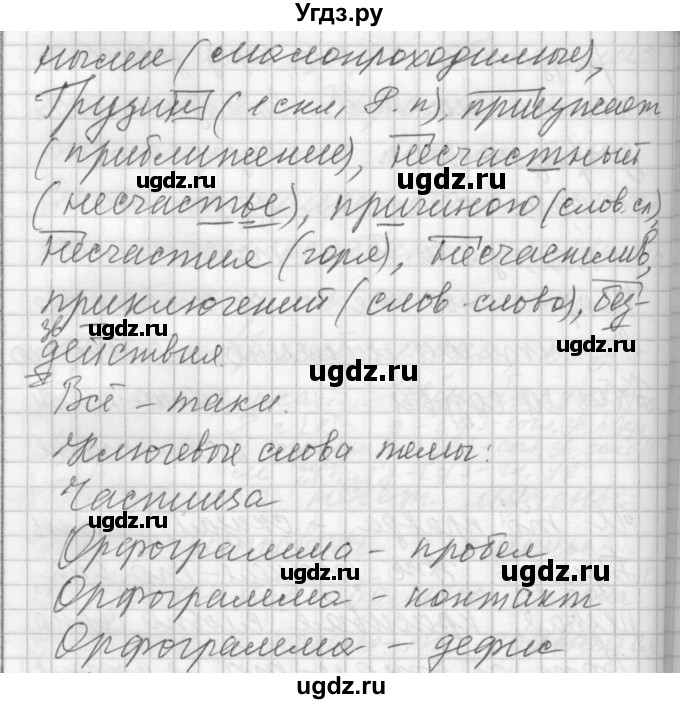 Угдз.ру
ными (малопроходимые),
Грузии (1 скл, Р. п), приезжает
(приближение), несчастный
(несчастье), причиною (слов. сл),
несчастия (горя), несчастлив,
приключений (слов. слова), без-
действия.
Всё-таки.
Ключевые слова темы:
Частица
Орфограмма - пробел
Орфограмма - контакт
Орфограмма - дефис
ugdz.ru
ugdz.ru
ugdz.ru
ugdz.ru
ugdz.ru
ugdz.ru
ugdz.ru
ugdz.ru
ugdz.ru
ugdz.ru
ugdz.ru